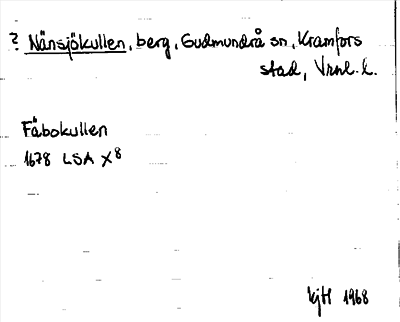 ? Nänsjökullen, berg, Gudmundrå sn, Kramfors
stad, Vrnl. l.
Fäbokullen
1678 LSA X8
KjH 1968